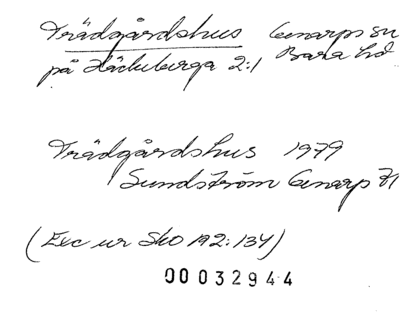 Trädgårdshus Genarps sn
på Häckeberga 2:1 Bara hd
Trädgårdshus 1979
Sundström Genarp 71
(Exc ur Sko 192:134)
00032944